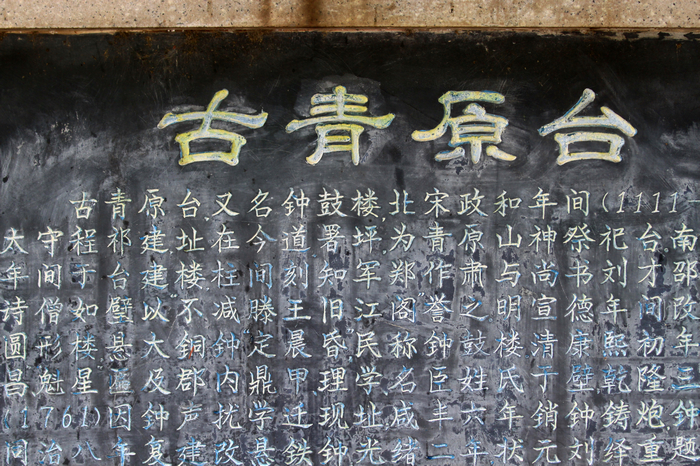 古青原台
古青原台又名钟鼓楼,北宋政和年间(1111
太守程祁建址在今道署坪,为青原山神祭祀台,南
年间于台建楼枉间刻知军郑作肃与尚书刘才邵
诗僧如璧以"不减滕王旧江阁"誉之明宣德年间改
圆形楼悬大铜钟定晨昏民称钟鼓楼清康熙初年
昌魁星匾及郡内鼎甲理学名臣姓氏于壁乾隆三
(1761)因钟声扰学迁现址咸丰六年銷钟铸炮,
治八年复建改悬铁钟光绪二年状元刘绎重题